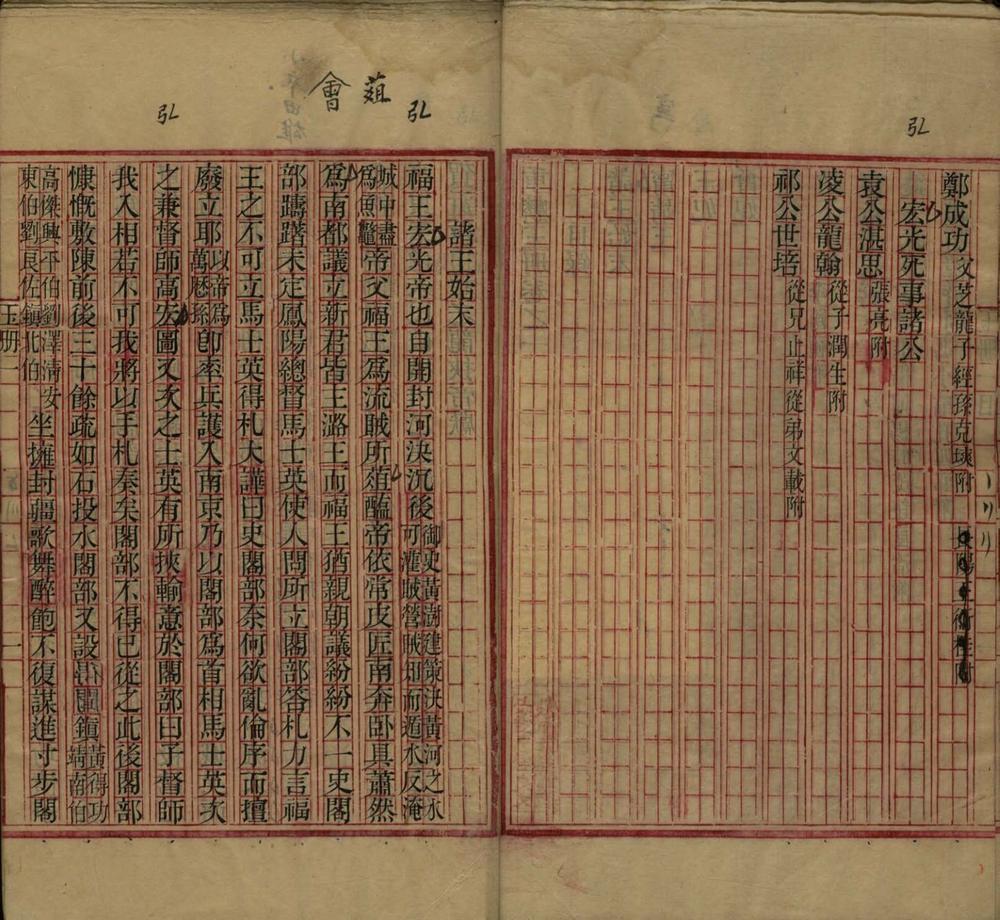 弘
鄭成功父芝龍子經孫克塽附
宏光死事諸公
袁公湛思張亮附
凌公龍翰從子潤生附
祁公世培從兄止祥從弟文載附
弘
葅
會
弘
諸王始末
福王宏光帝也自開封河決沉後御史黃澍建策決黃河之水可灌賊營賊知而遁水反淹
城中盡為魚鼈帝父福王爲流賊所葅醢帝依常皮匠南奔卧具蕭然
爲南都議立新君皆王潞王而福王猶親朝議紛紛不一史閣
部躊躇未定鳳陽總督馬士英使人問所立閣部答札力言福
王之不可立馬士英得札大譁曰史閣部奈何欲亂倫序而擅
廢立耶以帝爲萬曆孫卽率兵護入南京乃以閣部爲首相馬士英次
之兼督師高宏圖又次之士英有所挾輸意於閣部曰子督師
我入相若不可我將以手札奏矣閣部不得已從之此後閣部
慷慨敷陳前後三十餘疏如石投水閣部又設四鎮黃得功靖南伯
高傑興平伯劉澤淸安東伯劉良佐鎮北伯坐擁封疆歌舞醉飽不復謀進寸步閣
玉册一
一